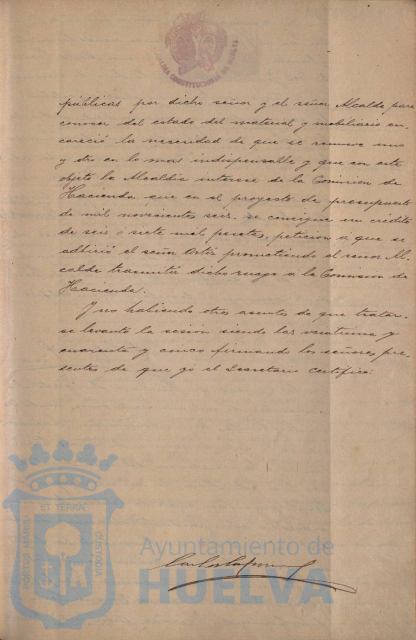 ALCALDIA CONSTITUCIONAL DE HUELVA
públicas por dicho señor y el señor Alcalde para
conocer del estado del material y mobiliario en-
careció la necesidad de que se renueve uno
y otro en lo mas indispensable y que con este
objeto la Alcaldía interese de la Comision de
Hacienda que en el proyecto de presupuesto
de mil novecientos seis se consigne un crédito
de seis o siete mil pesetas, peticion a que se
adhirió el señor Ortiz prometiendo el señor Al-
calde transmitir dicho ruego a la Comision de
Hacienda.
Y no habiendo otros asuntos de que tratar
se levantó la sesión siendo las veintiuna y
cuarenta y cinco firmando los señores pre-
sentes de que yo el Secretario certifico.
PORTUS MARIS
ET TERRÆ
CUSTODIA
Ayuntamiento de
HUELVA